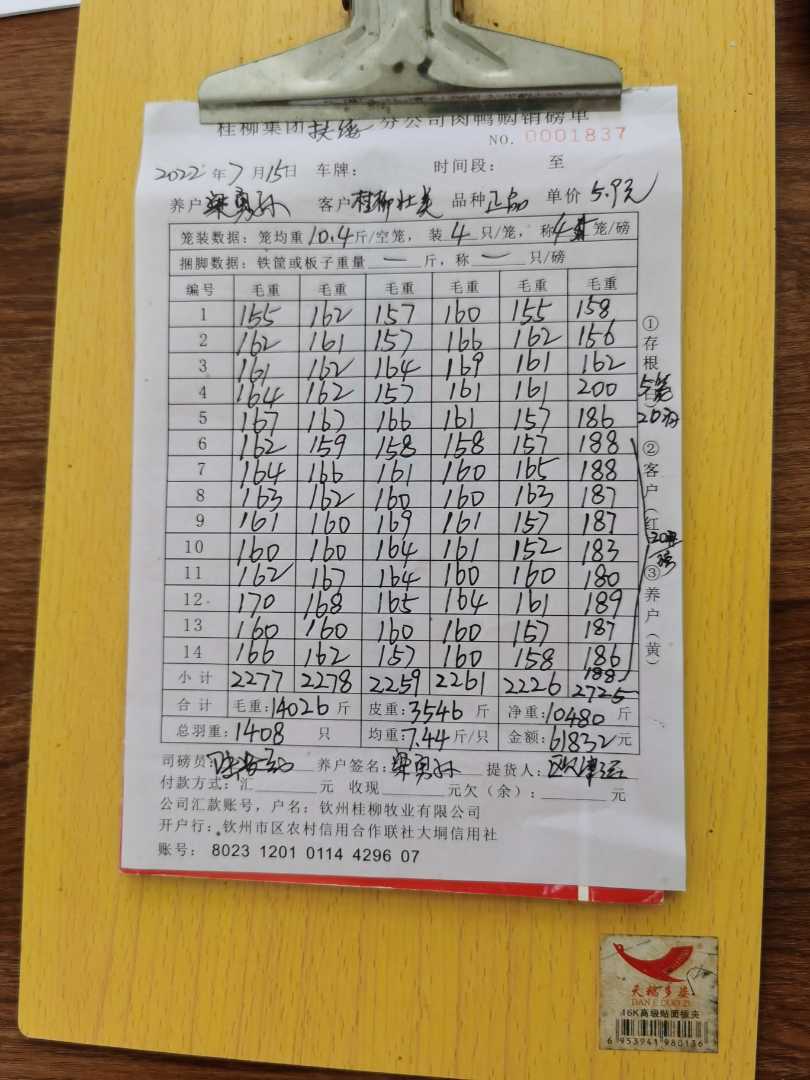 桂柳集团扶绥分公司肉鸭购销磅单
NO. 0001837
2022年7月15日 车牌： 时间段： 至
养户梁勇孙 客户桂柳壮美 品种正品 单价5.9元
笼装数据：笼均重10.4斤/空笼，装4只/笼，称4笼/磅
捆脚数据：铁筐或板子重量一斤，称一只/磅
编号 毛重 毛重 毛重 毛重 毛重 毛重
1 155 162 157 160 155 158
2 162 161 157 166 162 156
3 161 162 164 169 161 162
4 164 162 157 161 161 200
5 167 167 166 161 157 186
6 162 159 158 158 157 188
7 164 166 161 160 165 188
8 163 162 160 160 163 187
9 161 160 169 161 157 187
10 160 160 164 161 152 183
11 162 167 164 160 160 180
12 170 168 165 164 161 189
13 160 160 160 160 157 187
14 166 162 157 160 158 186
188
小计 2277 2278 2259 2261 2226 2725
合计 毛重：14026斤 皮重：3546斤 净重：10480斤
总羽重：1408只 均重：7.44斤/只 金额：61832元
司磅员： 养户签名：梁勇孙 提货人：
付款方式：汇 元 收现 元欠（余）： 元
公司汇款账号，户名：钦州桂柳牧业有限公司
开户行：钦州市区农村信用合作联社大垌信用社
账号： 8023 1201 0114 4296 07
①存根（白）②客户（红）③养户（黄）
5笼
20羽
天福多姿
DAN E DUO ZI
16K高级贴面板夹
6 953941 980136